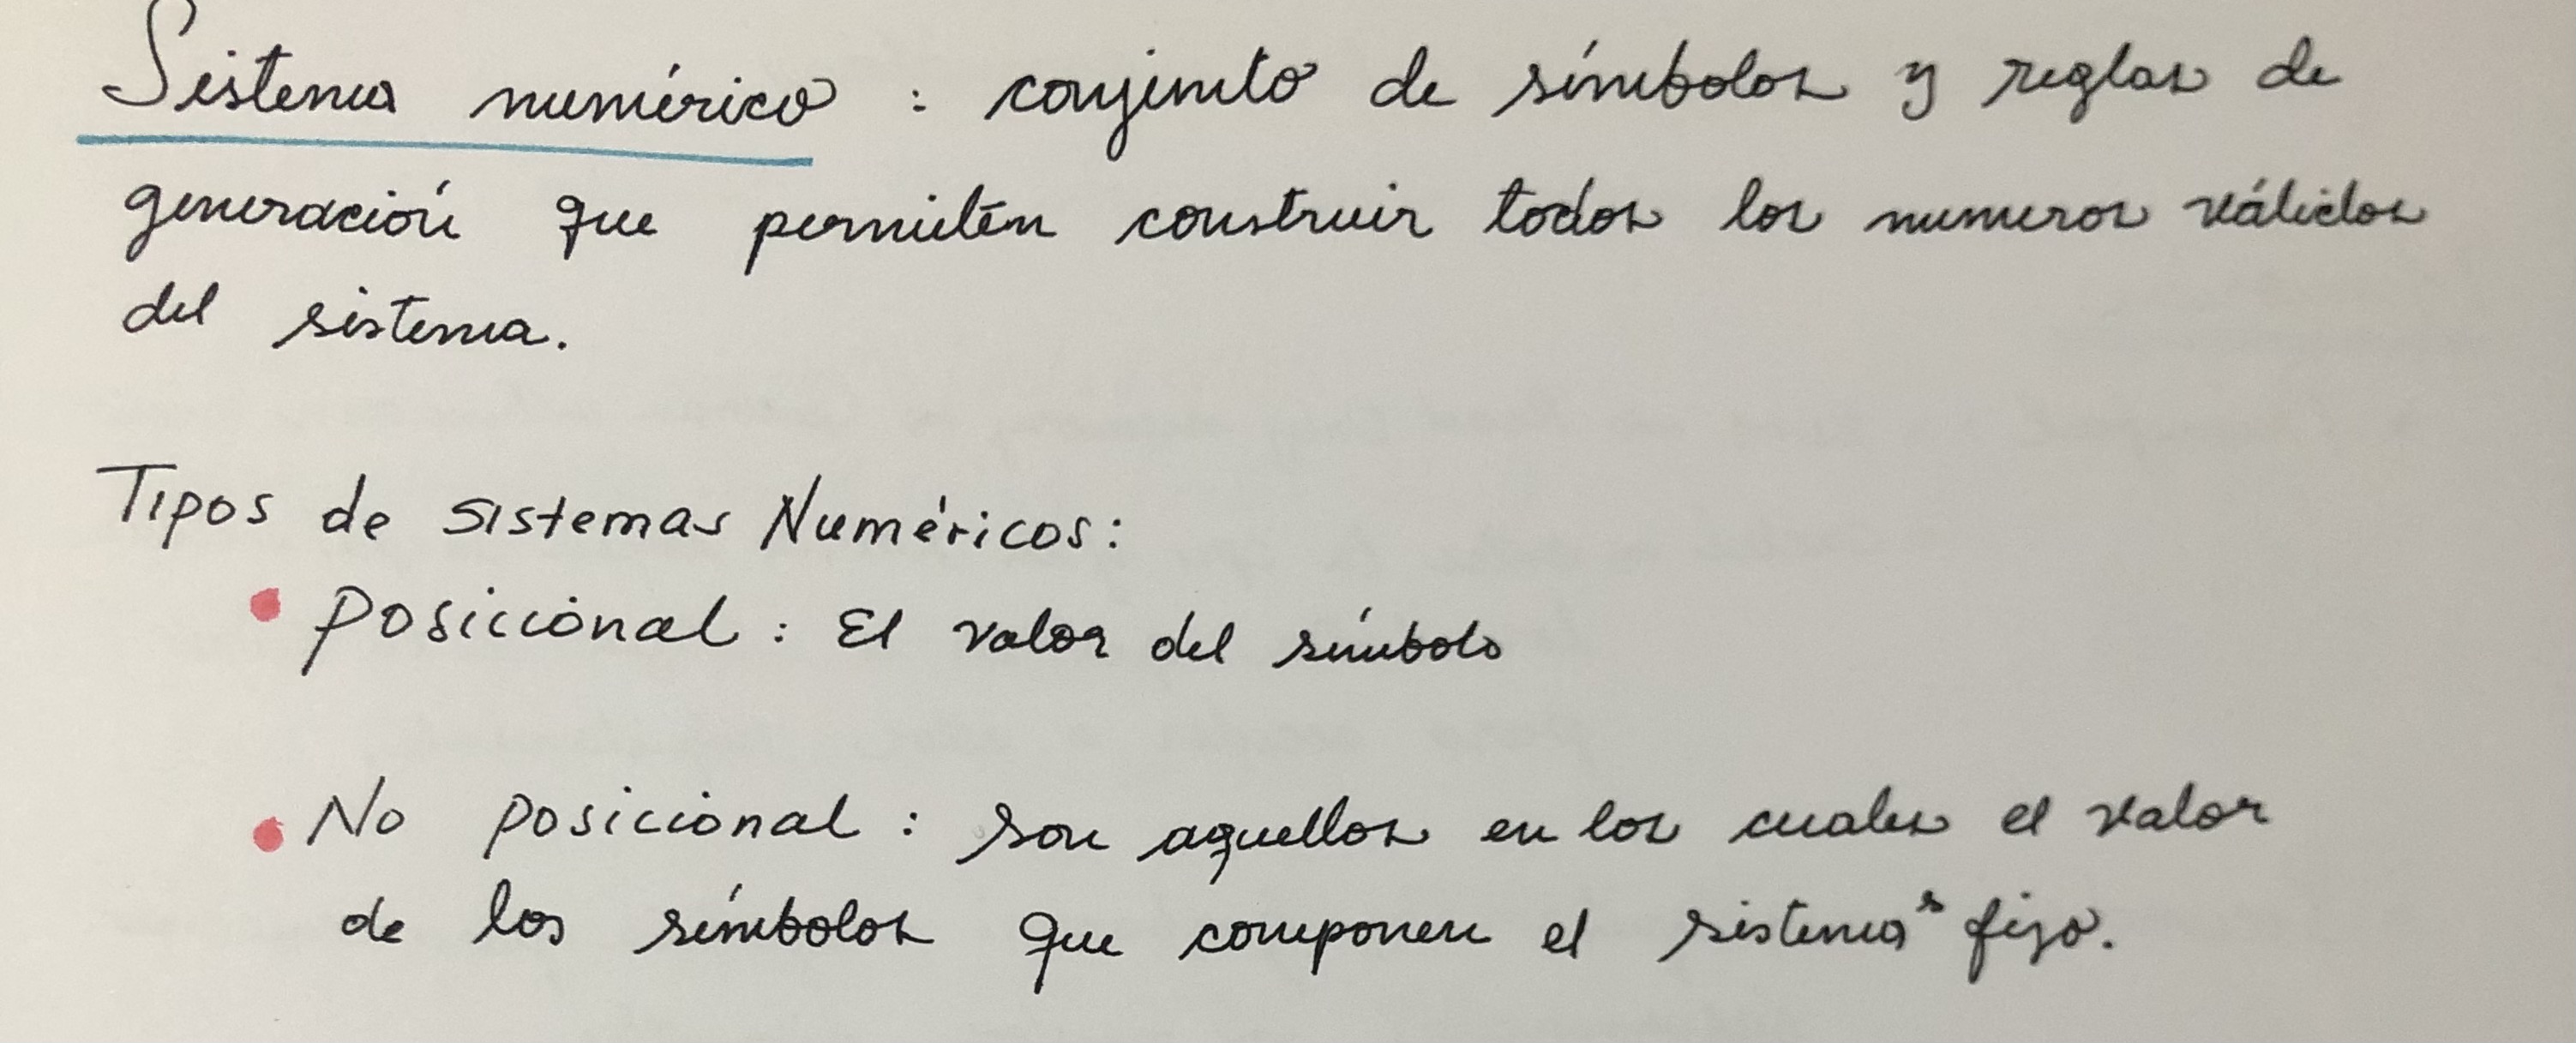 Sistema numérico : conjunto de símbolos y reglas de
generación que permiten construir todos los numeros válidos
del sistema.
Tipos de sistemas Numéricos:
• Posicional : El valor del símbolo
• No posicional : son aquellos en los cuales el valor
de los símbolos que componen el sistema s fijo.